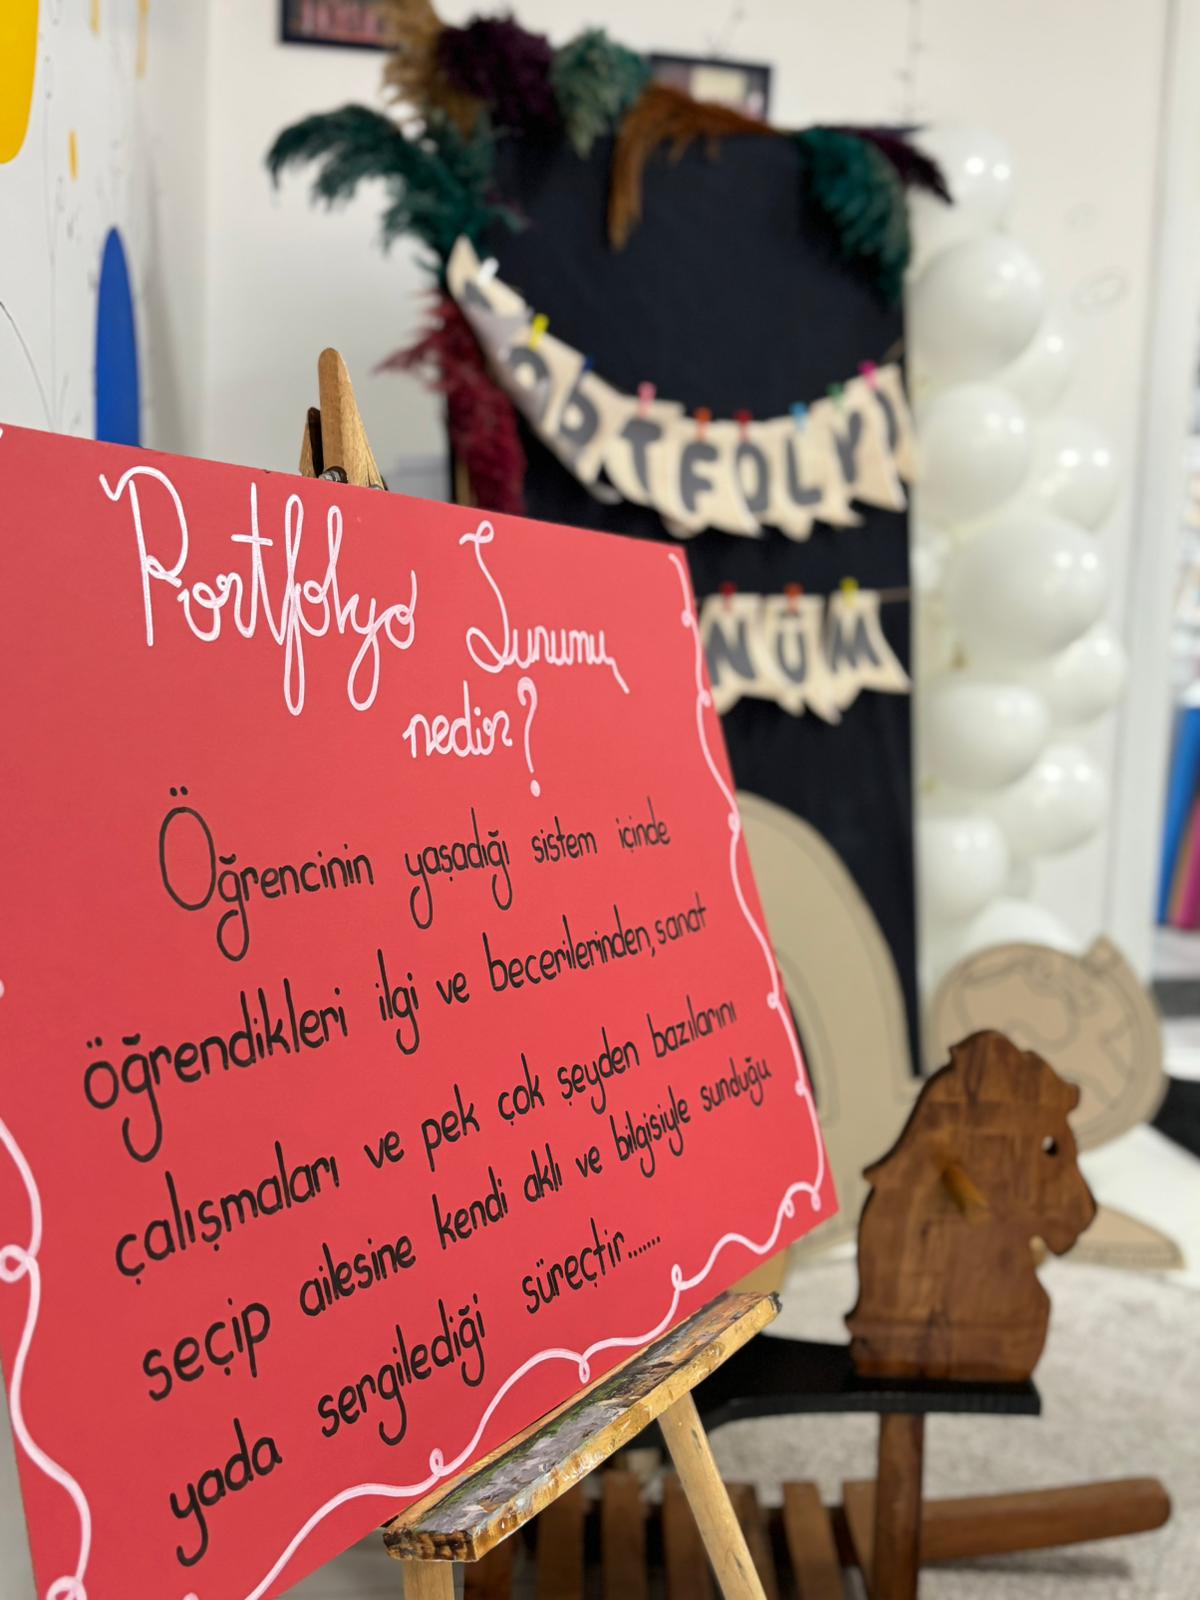 Portfolyo Sunumu
nedir?
Öğrencinin yaşadığı sistem içinde
öğrendikleri ilgi ve becerilerinden, sanat
çalışmaları ve pek çok şeyden bazılarını
seçip ailesine kendi aklı ve bilgisiyle sunduğu
yada sergilediği süreçtir.......
ORTFOLY
NÜM